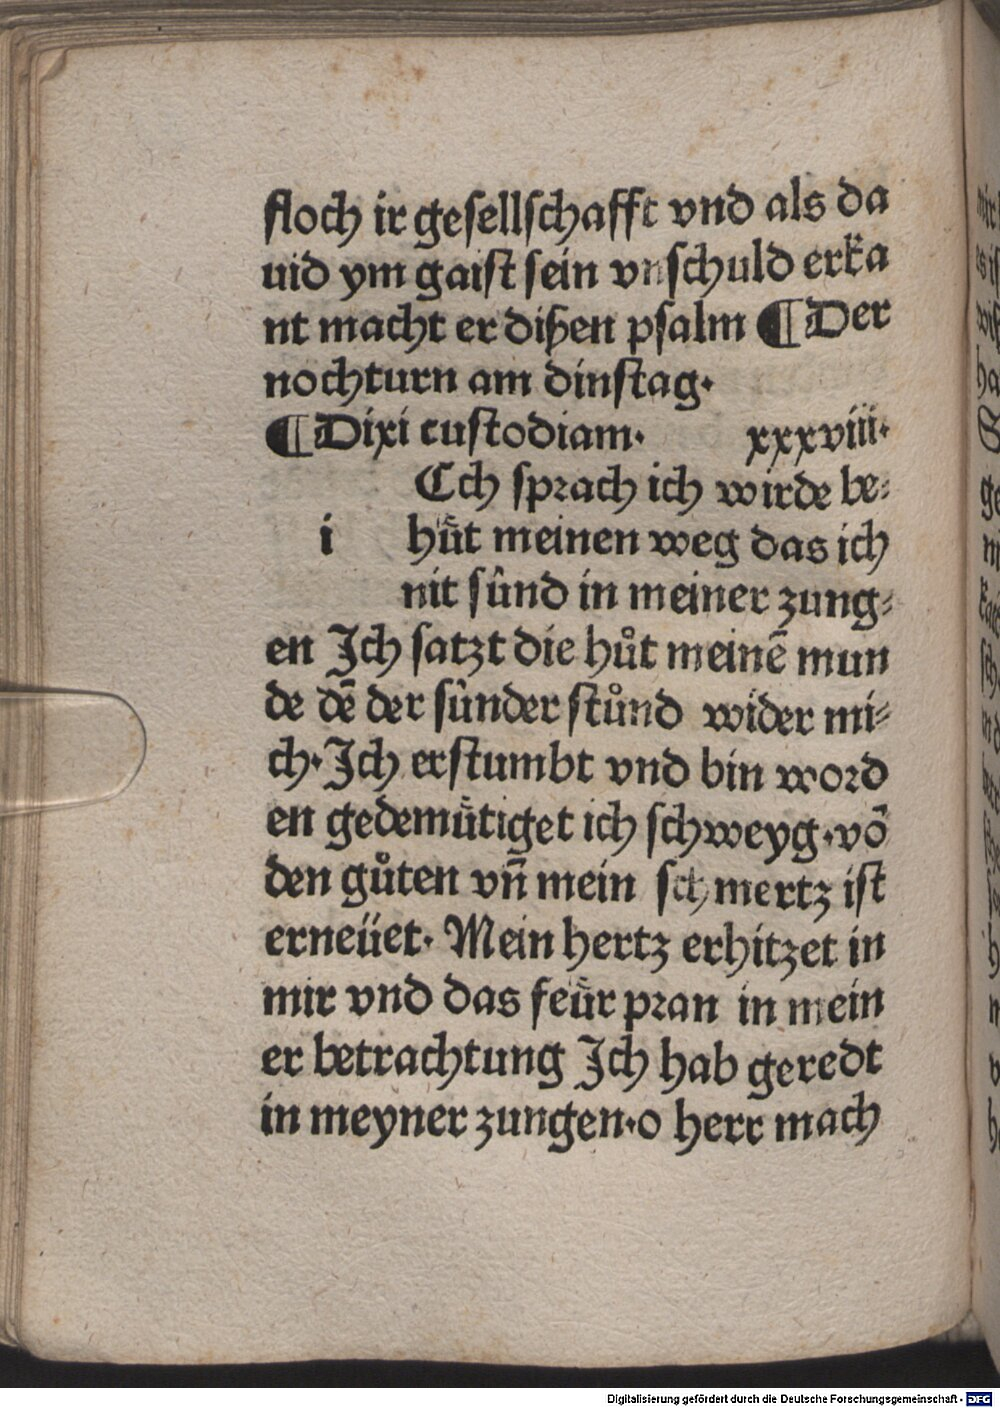 floch ir gesellschafft vnd als da
uid ym gaist sein vnschuld erka
nt macht er dißen psalm ¶ Der
nochturn am dinstag.
¶ Dixi custodiam. xxxviii.
Cch sprach ich wirde be-
i hůt meinen weg das ich
nit sûnd in meiner zung-
en Jch satzt die hůt meinē mun
de dē der sûnder stůnd wider mi-
ch. Jch erstumbt vnd bin word
en gedemůtiget ich schweyg. vō
den gůten vn̄ mein schmertz ist
erneüet. Mein hertz erhitzet in
mir vnd das feůr pran in mein
er betrachtung Jch hab geredt
in meyner zungen. o herr mach
Digitalisierung gefördert durch die Deutsche Forschungsgemeinschaft - DFG